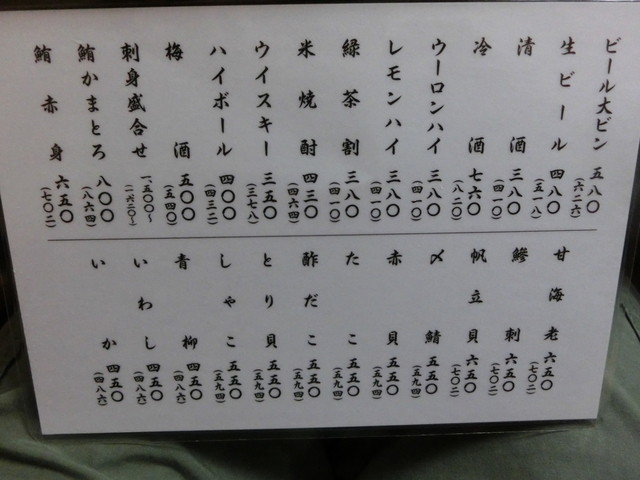 ビール大ビン 五八〇 (六二六)
生ビール 四八〇 (五一八)
清酒 三八〇 (四一〇)
冷酒 七六〇 (八二〇)
ウーロンハイ 三八〇 (四一〇)
レモンハイ 三八〇 (四一〇)
緑茶割 三八〇 (四一〇)
米焼酎 四三〇 (四六四)
ウイスキー 三五〇 (三七八)
ハイボール 四〇〇 (四三二)
梅酒 五〇〇 (五四〇)
刺身盛合せ 一、五〇〇〜 (一、六二〇〜)
鮪かまとろ 八〇〇 (八六四)
鮪赤身 六五〇 (七〇二)
甘海老 六五〇 (七〇二)
鰺刺 六五〇 (七〇二)
帆立貝 六五〇 (七〇二)
〆鯖 五五〇 (五九四)
赤貝 五五〇 (五九四)
たこ 五五〇 (五九四)
酢だこ 五五〇 (五九四)
とり貝 五五〇 (五九四)
しゃこ 五五〇 (五九四)
青柳 四五〇 (四八六)
いわし 四五〇 (四八六)
いか 四五〇 (四八六)